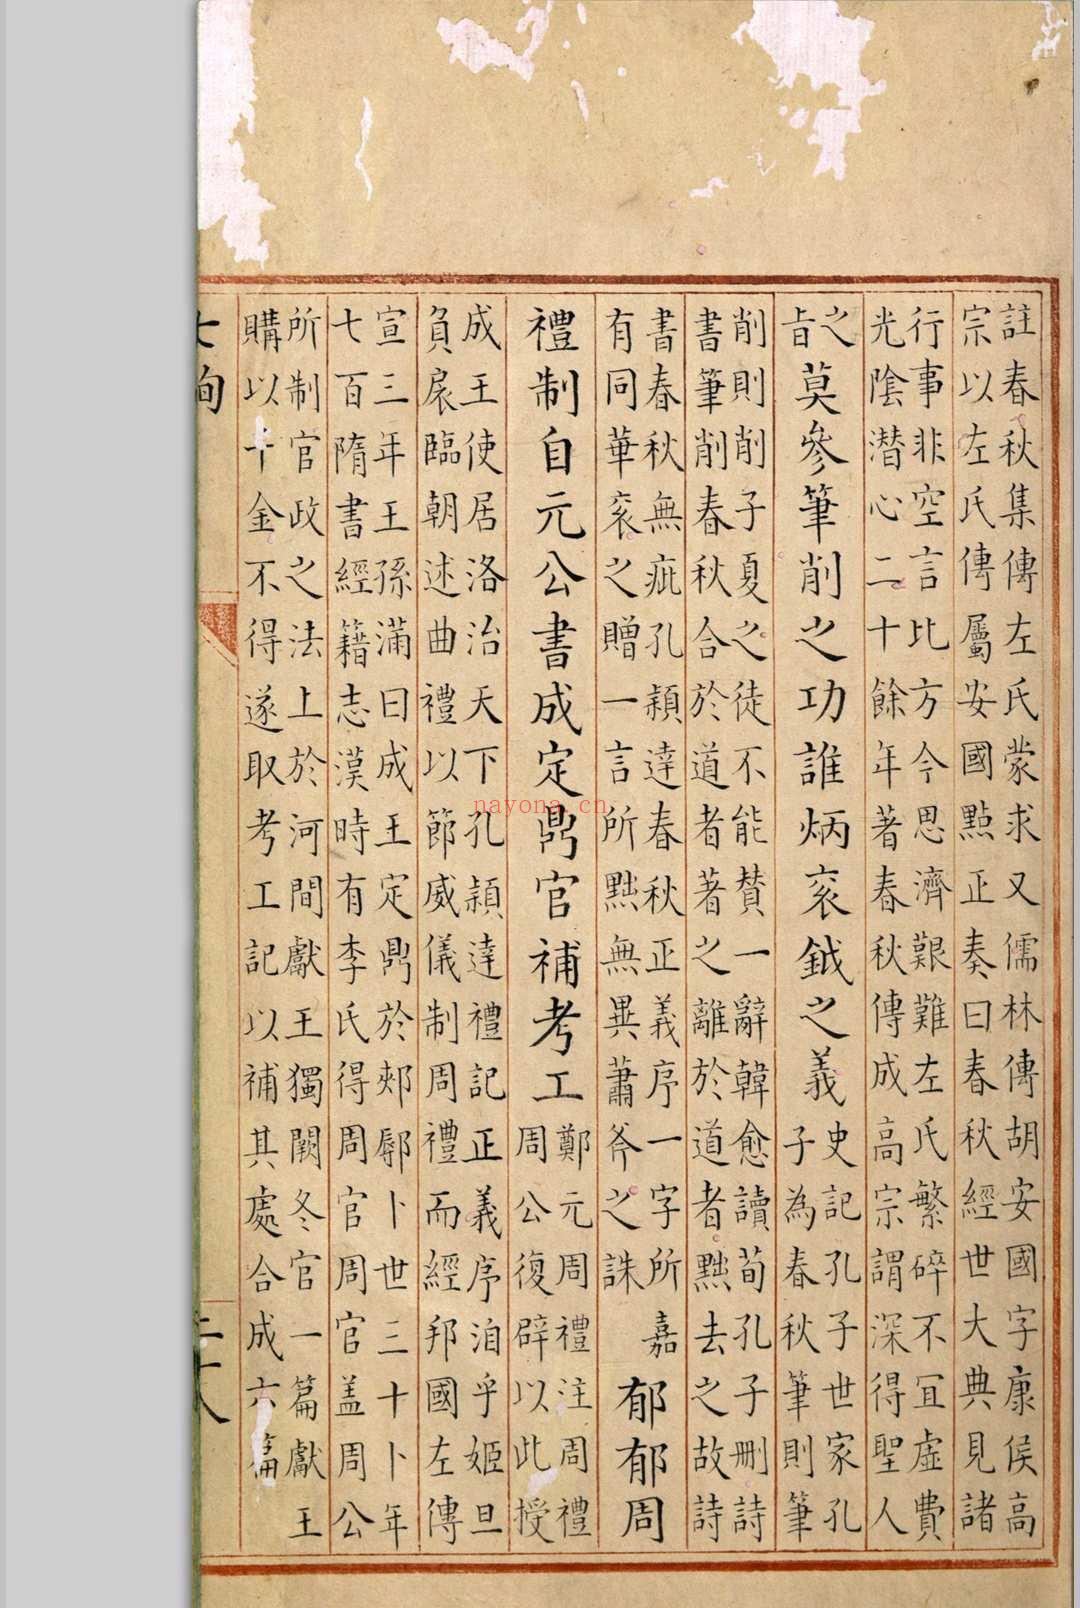 註春秋集傳左氏蒙求又儒林傳胡安國字康侯高
宗以左氏傳屬安國㸃正奏曰春秋經世大典見諸
行事非空言比方今思濟艱難左氏繁碎不宜虛費
光陰潛心二十餘年著春秋傳成高宗謂深得聖人
之
旨
莫參筆削之功誰炳衮鉞之義
史記孔子世家孔
子為春秋筆則筆
削則削子夏之徒不能贊一辭韓愈讀荀孔子刪詩
書筆削春秋合於道者著之離於道者黜去之故詩
書春秋無疵孔穎達春秋正義序一字所嘉
有同華衮之贈一言所黜無異蕭斧之誅
郁郁周
禮制自元公書成定鼎官補考工
鄭元周禮注周禮
周公復辟以此授
成王使居洛治天下孔穎達禮記正義序洎乎姬旦
負扆臨朝述曲禮以節威儀制周禮而經邦國左傳
宣三年王孫滿曰成王定鼎於郟鄏卜世三十卜年
七百隋書經籍志漢時有李氏得周官周官蓋周公
所制官政之法上於河間獻王獨闕冬官一篇獻王
購以千金不得遂取考工記以補其處合成六篇
nayona.cn